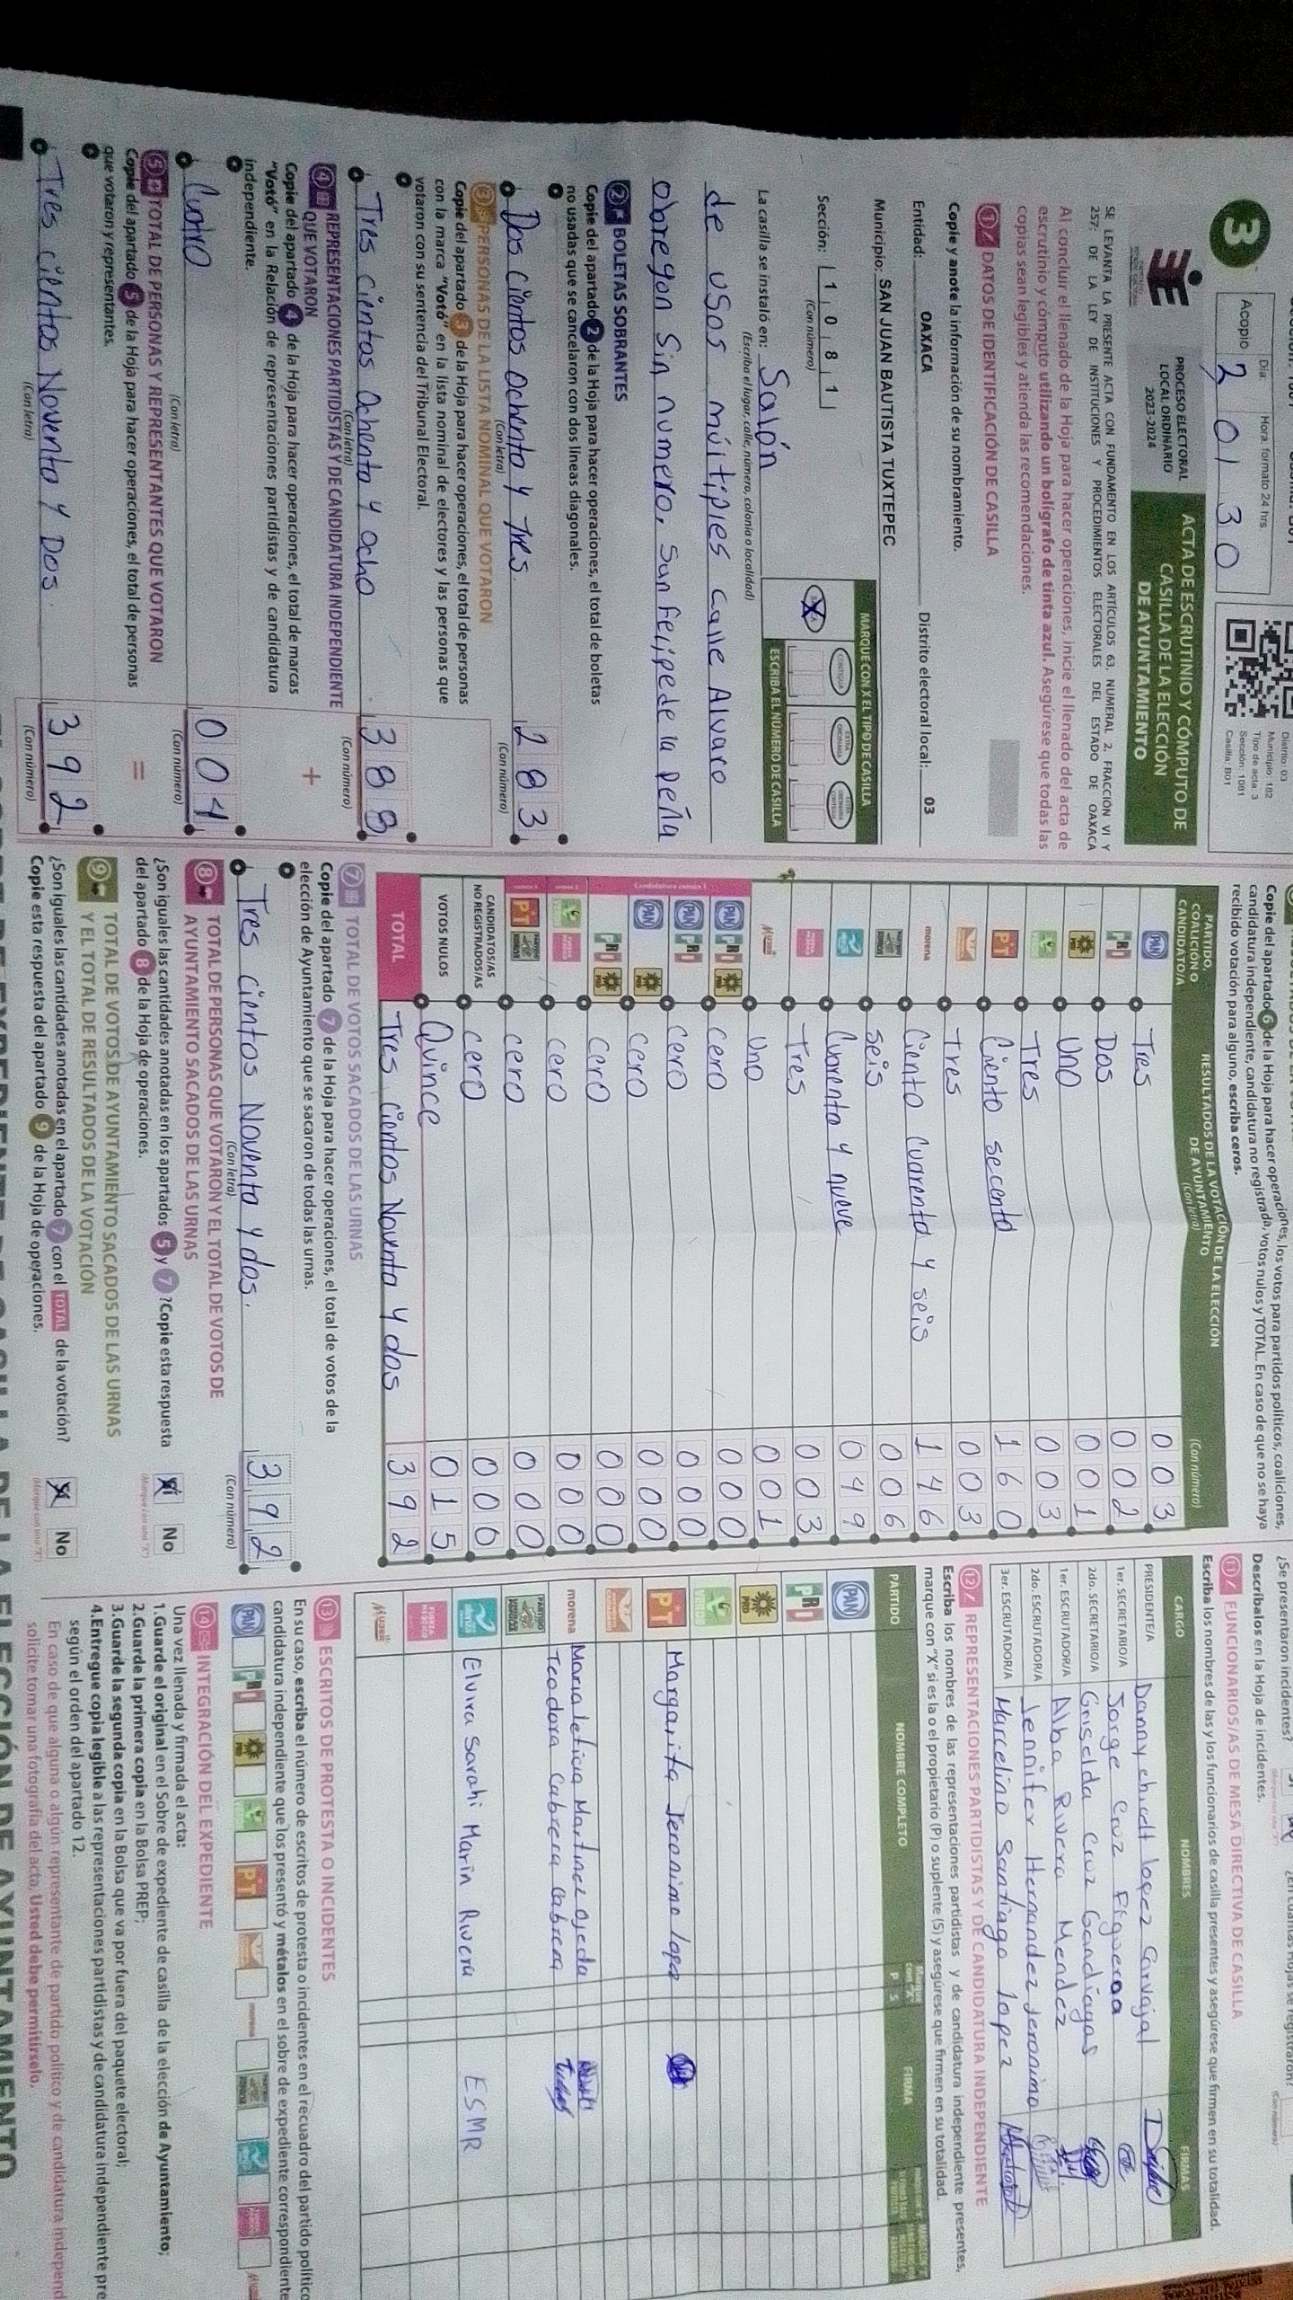 3
Acopio
Día:
Hora: formato 24 hrs
2 01 30
Distrito: 03
Municipio: 182
Tipo de acta: 3
Sección: 1081
Casilla: B01
PROCESO ELECTORAL
LOCAL ORDINARIO
2023-2024
ACTA DE ESCRUTINIO Y CÓMPUTO DE
CASILLA DE LA ELECCIÓN
DE AYUNTAMIENTO
SE LEVANTA LA PRESENTE ACTA CON FUNDAMENTO EN LOS ARTÍCULOS 63, NUMERAL 2, FRACCIÓN VI Y
257; DE LA LEY DE INSTITUCIONES Y PROCEDIMIENTOS ELECTORALES DEL ESTADO DE OAXACA
Al concluir el llenado de la Hoja para hacer operaciones, inicie el llenado del acta de
escrutinio y cómputo utilizando un bolígrafo de tinta azul. Asegúrese que todas las
copias sean legibles y atienda las recomendaciones.
1 DATOS DE IDENTIFICACIÓN DE CASILLA
Copie y anote la información de su nombramiento.
Entidad: OAXACA Distrito electoral local: 03
Municipio: SAN JUAN BAUTISTA TUXTEPEC
Sección: 1 0 8 1
(Con número)
MARQUE CON X EL TIPO DE CASILLA
ESCRIBA EL NÚMERO DE CASILLA
La casilla se instaló en: Salón
(Escriba el lugar, calle, número, colonia o localidad)
de usos múltiples calle Alvaro
obregon Sin numero, San Felipe de la Peña
2 BOLETAS SOBRANTES
Copie del apartado 2 de la Hoja para hacer operaciones, el total de boletas
no usadas que se cancelaron con dos líneas diagonales.
Dos cientos ochenta y tres. 283
(Con letra) (Con número)
3 PERSONAS DE LA LISTA NOMINAL QUE VOTARON
Copie del apartado 3 de la Hoja para hacer operaciones, el total de personas
con la marca "Votó" en la lista nominal de electores y las personas que
votaron con su sentencia del Tribunal Electoral.
Tres cientos Ochenta y ocho 388
(Con letra) (Con número)
4 REPRESENTACIONES PARTIDISTAS Y DE CANDIDATURA INDEPENDIENTE
QUE VOTARON
Copie del apartado 4 de la Hoja para hacer operaciones, el total de marcas
"Votó" en la Relación de representaciones partidistas y de candidatura
independiente.
+
Cuatro 004
(Con letra) (Con número)
5 TOTAL DE PERSONAS Y REPRESENTANTES QUE VOTARON
Copie del apartado 5 de la Hoja para hacer operaciones, el total de personas
que votaron y representantes.
=
Tres cientos Noventa y Dos. 392
(Con letra) (Con número)
Copie del apartado 6 de la Hoja para hacer operaciones, los votos para partidos políticos, coaliciones,
candidatura independiente, candidatura no registrada, votos nulos y TOTAL. En caso de que no se haya
recibido votación para alguno, escriba ceros.
PARTIDO,
COALICIÓN O
CANDIDATO/A
RESULTADOS DE LA VOTACIÓN DE LA ELECCIÓN
DE AYUNTAMIENTO
(Con letra)
(Con número)
PAN Tres 003
PRI Dos 002
PRD Uno 001
Tres 003
PT Ciento secenta 160
Tres 003
morena Ciento Cuarenta y seis 146
seis 006
Cuarenta y nueve 049
Tres 003
Uno 001
PAN PRI PRD cero 000
PAN PRI cero 000
PAN PRD cero 000
PRI PRD cero 000
cero 000
PT cero 000
CANDIDATOS/AS
NO REGISTRADOS/AS cero 000
VOTOS NULOS Quince 015
TOTAL Tres cientos Noventa y dos 392
7 TOTAL DE VOTOS SACADOS DE LAS URNAS
Copie del apartado 7 de la Hoja para hacer operaciones, el total de votos de la
elección de Ayuntamiento que se sacaron de todas las urnas.
Tres cientos Noventa y dos. 392
(Con letra) (Con número)
8 TOTAL DE PERSONAS QUE VOTARON Y EL TOTAL DE VOTOS DE
AYUNTAMIENTO SACADOS DE LAS URNAS
¿Son iguales las cantidades anotadas en los apartados 5 y 7? Copie esta respuesta
del apartado 8 de la Hoja de operaciones.
Sí No
9 TOTAL DE VOTOS DE AYUNTAMIENTO SACADOS DE LAS URNAS
Y EL TOTAL DE RESULTADOS DE LA VOTACIÓN
¿Son iguales las cantidades anotadas en el apartado 7 con el TOTAL de la votación?
Copie esta respuesta del apartado 9 de la Hoja de operaciones.
Sí No
¿Se presentaron incidentes?
Descríbalos en la Hoja de incidentes.
11 FUNCIONARIOS/AS DE MESA DIRECTIVA DE CASILLA
Escriba los nombres de las y los funcionarios de casilla presentes y asegúrese que firmen en su totalidad.
CARGO NOMBRES FIRMAS
PRESIDENTE/A Danny chicelt lopez Carvajal
1er. SECRETARIO/A Jorge Cruz Figueroa
2do. SECRETARIO/A Griselda Cruz Gandiagas
1er. ESCRUTADOR/A Alba Rivera Mendez
2do. ESCRUTADOR/A Jennifer Hernandez Jeronimo
3er. ESCRUTADOR/A Marcelino Santiago lopez
12 REPRESENTACIONES PARTIDISTAS Y DE CANDIDATURA INDEPENDIENTE
Escriba los nombres de las representaciones partidistas y de candidatura independiente presentes,
marque con "X" si es la o el propietario (P) o suplente (S) y asegúrese que firmen en su totalidad.
PARTIDO NOMBRE COMPLETO P S FIRMA
PAN
PRI
PRD
PT Margarita Jeronimo lopez
morena Maria leticia Martinez ojeda
Teodora Cabrera Cabrera
Elvira Sarahi Marin Rivera ESMR
13 ESCRITOS DE PROTESTA O INCIDENTES
En su caso, escriba el número de escritos de protesta o incidentes en el recuadro del partido político
candidatura independiente que los presentó y métalos en el sobre de expediente correspondiente
PAN PRI PRD PT morena
14 INTEGRACIÓN DEL EXPEDIENTE
Una vez llenada y firmada el acta:
1.Guarde el original en el Sobre de expediente de casilla de la elección de Ayuntamiento;
2.Guarde la primera copia en la Bolsa PREP;
3.Guarde la segunda copia en la Bolsa que va por fuera del paquete electoral;
4.Entregue copia legible a las representaciones partidistas y de candidatura independiente pre
según el orden del apartado 12.
En caso de que alguna o algún representante de partido político y de candidatura independ
solicite tomar una fotografía del acta, Usted debe permitírselo.